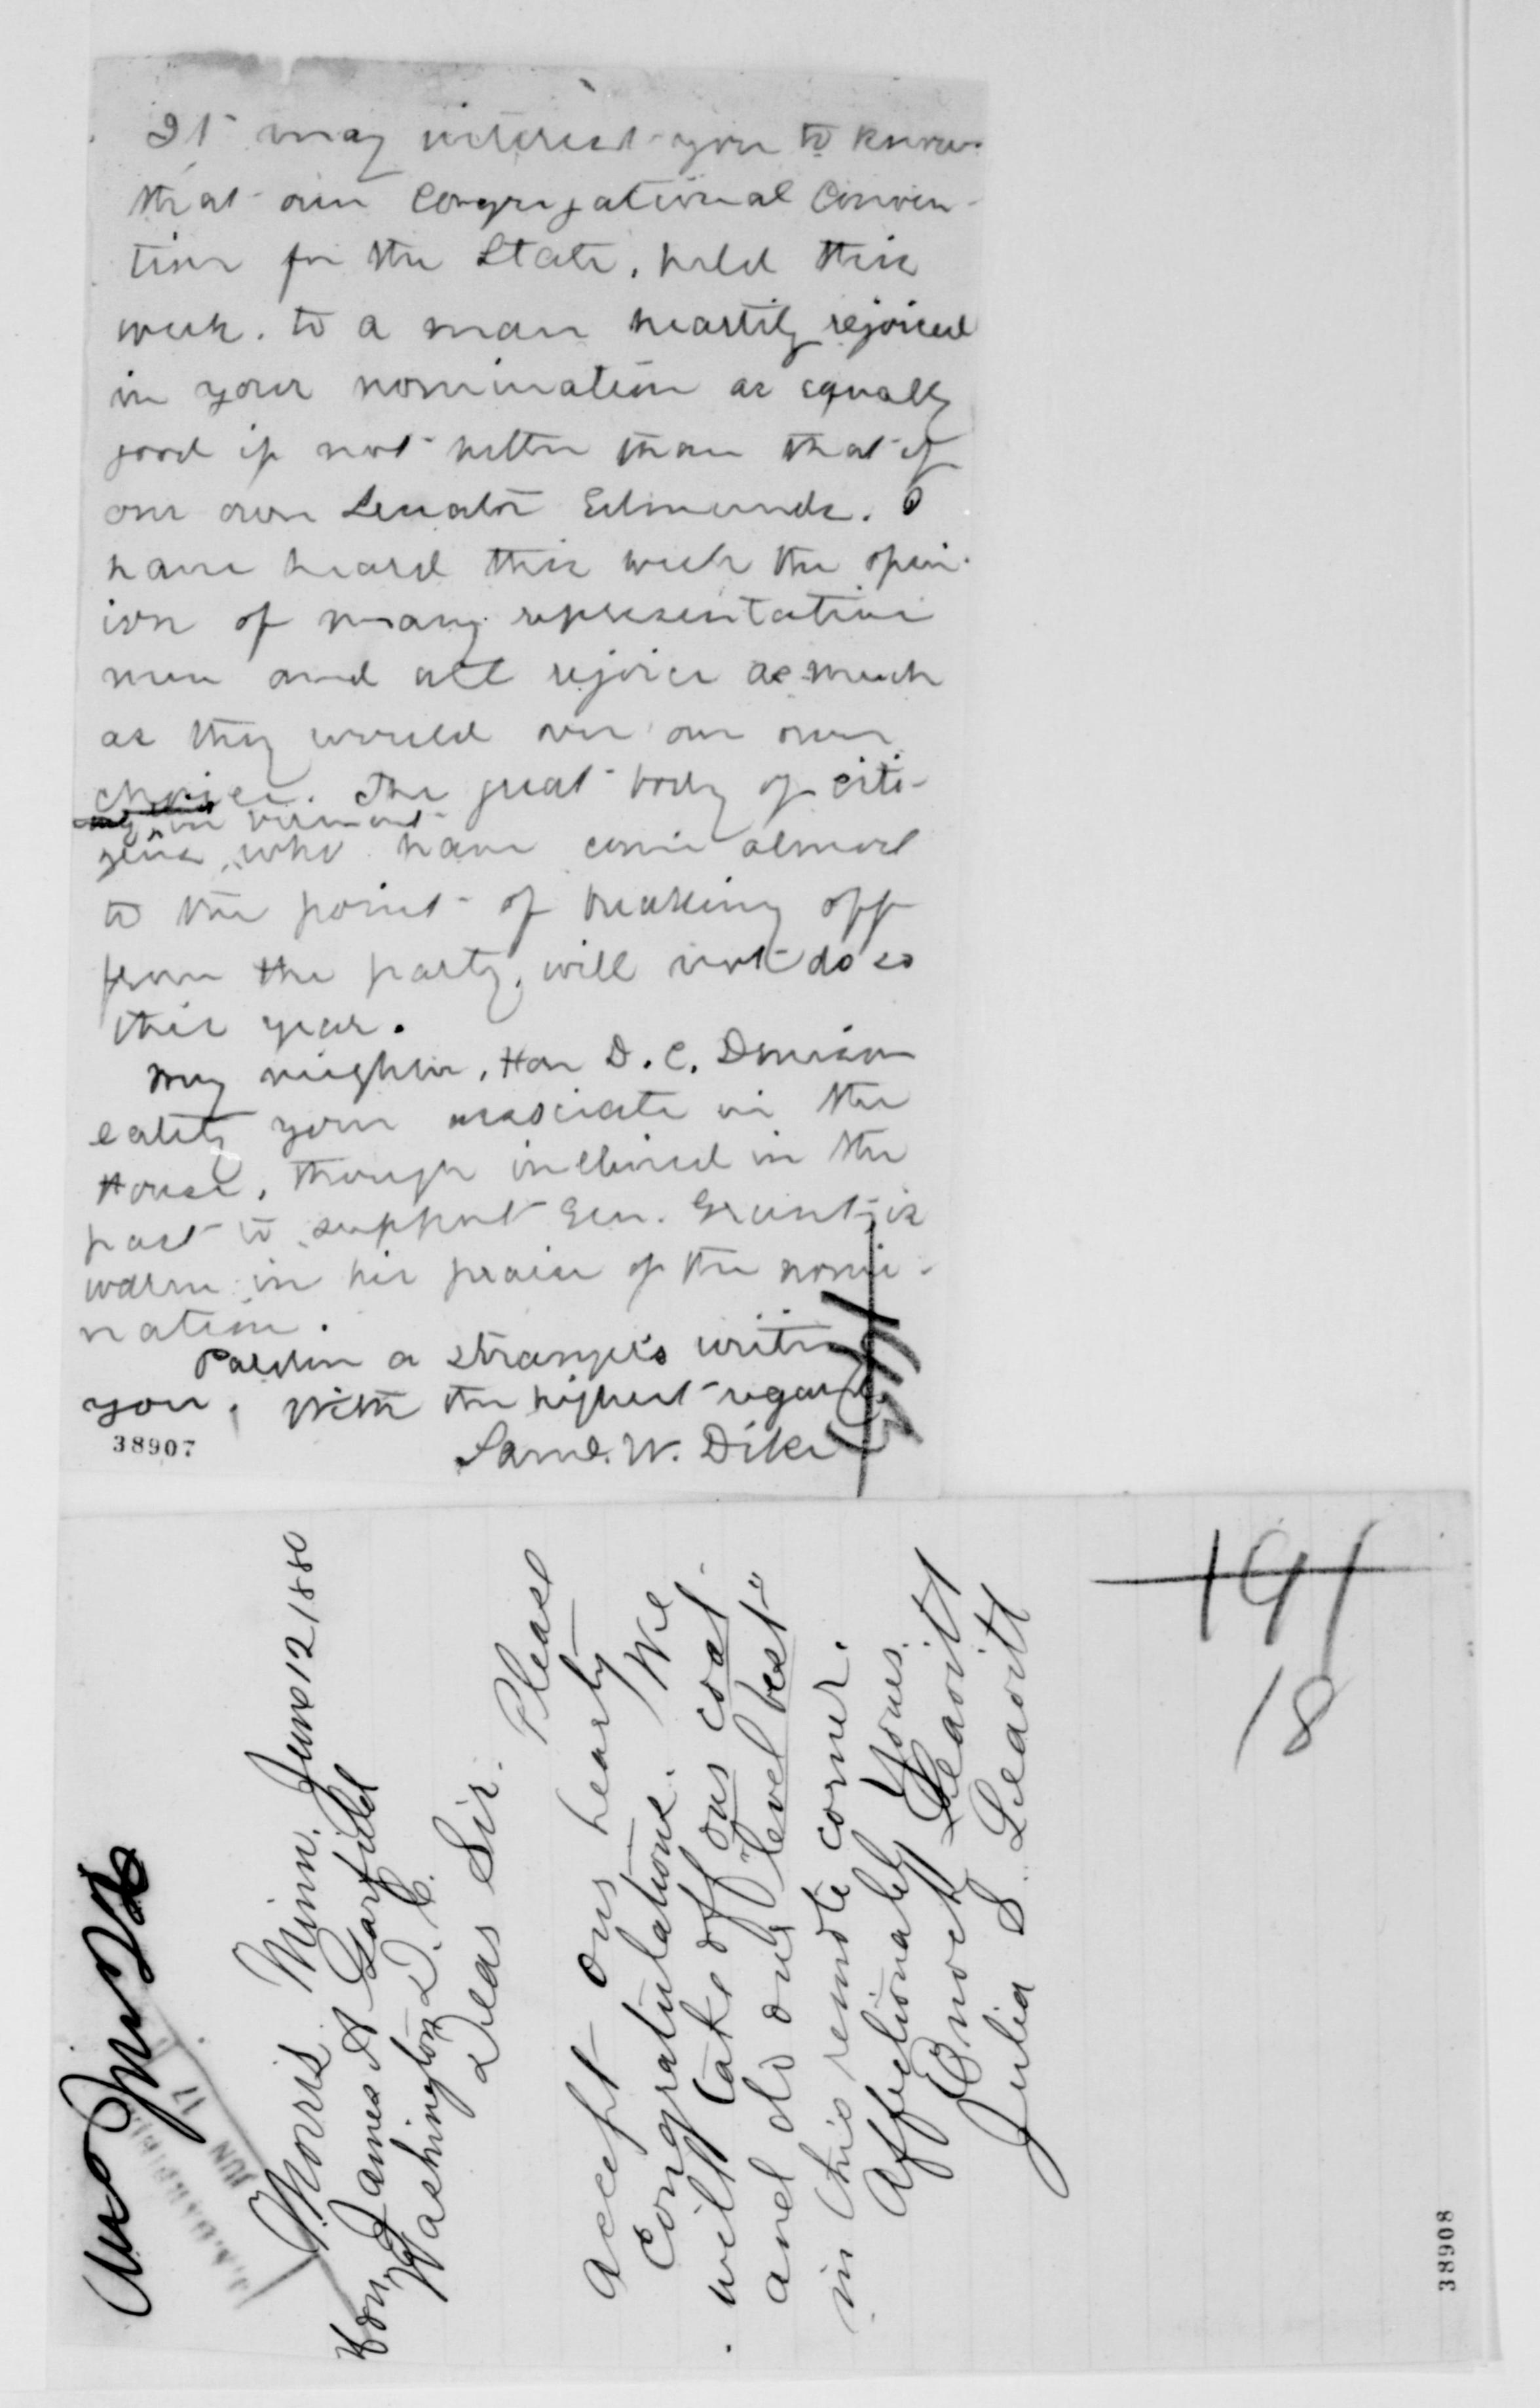 It may interest you to know
that our Congregational Conven-
tion for the State, held this
week, to a man heartily rejoiced
in your nomination as equally
good if not better than that of
our own Senator Edmunds. I
have heard this week the opin-
ion of many representative
men and all rejoice as much
as they would over our own
choice. The great body of citi-
in Vermont
zens who have come almost
to the point of breaking off
from the party, will not do so
this year.
My neighbor, Hon D. C. Denison
lately your associate in the
House, though inclined in the
past to support Gen. Grant, is
warm in his praise of the nomi-
nation.
Pardon a stranger's writing
you. With the highest regard
Saml. W. Dike
38907
Ans June 26
JUN 17
Morris Minn. June 12 1880
Hon James A Garfield
Washington D.C.
Dear Sir. Please
accept our hearty
Congratulations. We
will take off our coat
and do our "level best"
in this remote corner.
Affectionately Yours.
Leavitt
Julia S. Leavitt
191
18
38908